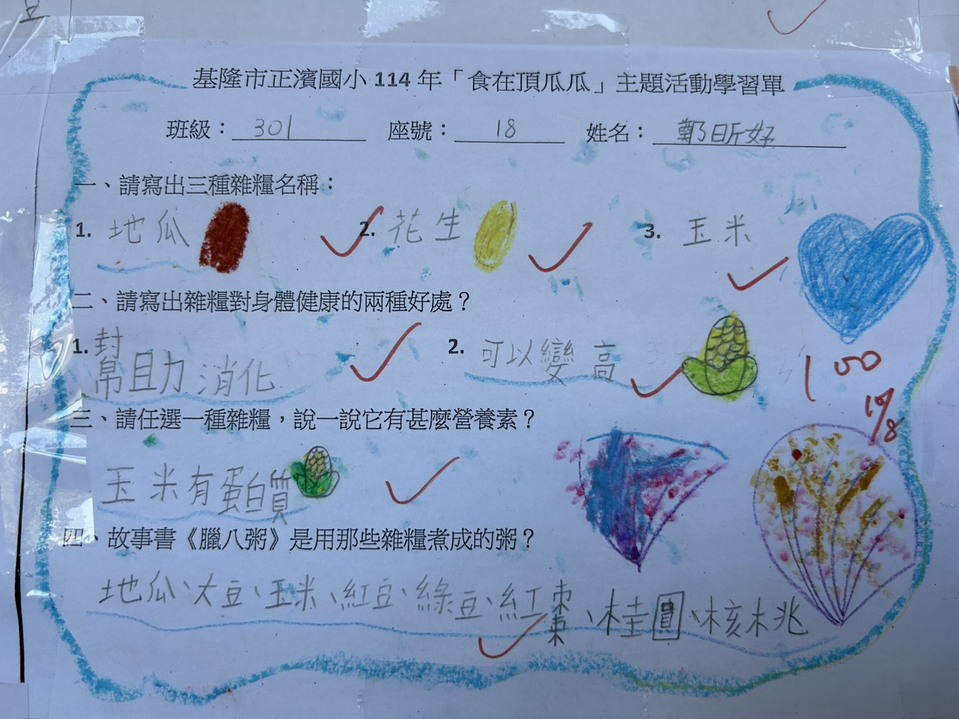 基隆市正濱國小 114 年「食在頂瓜瓜」主題活動學習單
班級：301 座號：18 姓名：鄭昕妤
一、請寫出三種雜糧名稱：
1. 地瓜 2. 花生 3. 玉米
二、請寫出雜糧對身體健康的兩種好處？
1. 幫助消化 2. 可以變高
100
10/8
三、請任選一種雜糧，說一說它有甚麼營養素？
玉米有蛋白質
四、故事書《臘八粥》是用那些雜糧煮成的粥？
地瓜、大豆、玉米、紅豆、綠豆、紅棗、桂圓、核桃